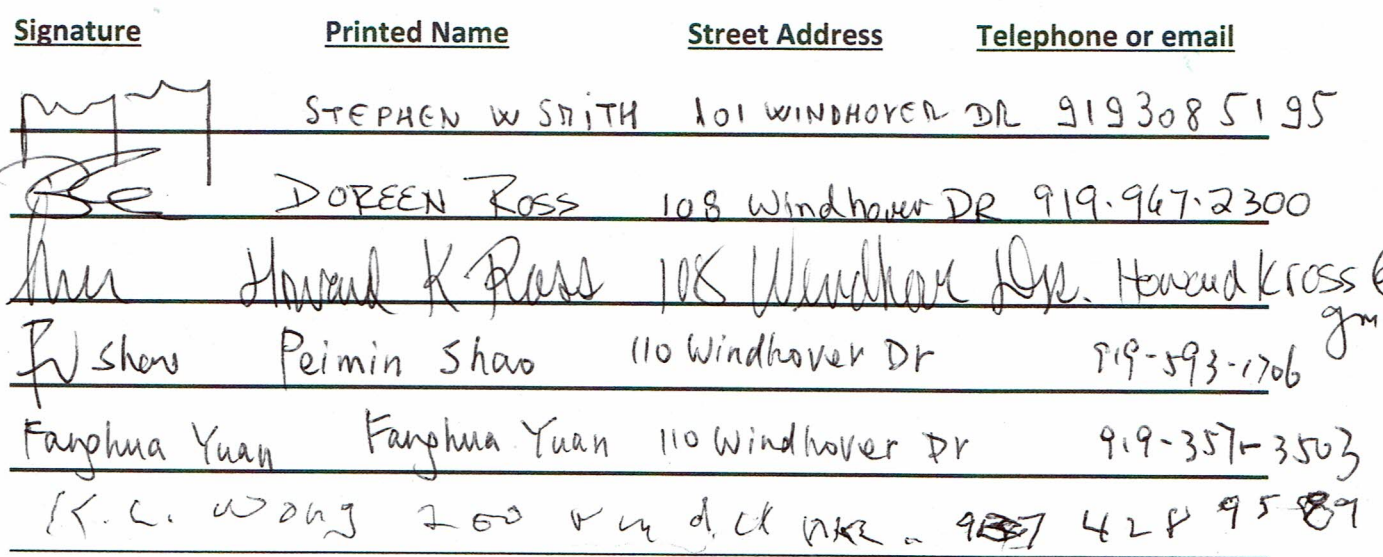 Signature Printed Name Street Address Telephone or email
STEPHEN W SMITH 101 WINDHOVER DR 9193085195
DOREEN ROSS 108 Windhover DR 919.967.2300
Howard K Ross 108 Windhover Dr. HowardKross
gm
Shao Peimin Shao 110 Windhover Dr 919-593-1706
Fanghua Yuan Fanghua Yuan 110 Windhover Dr 919-357-3503
K.C. Wong 200 428 95 89